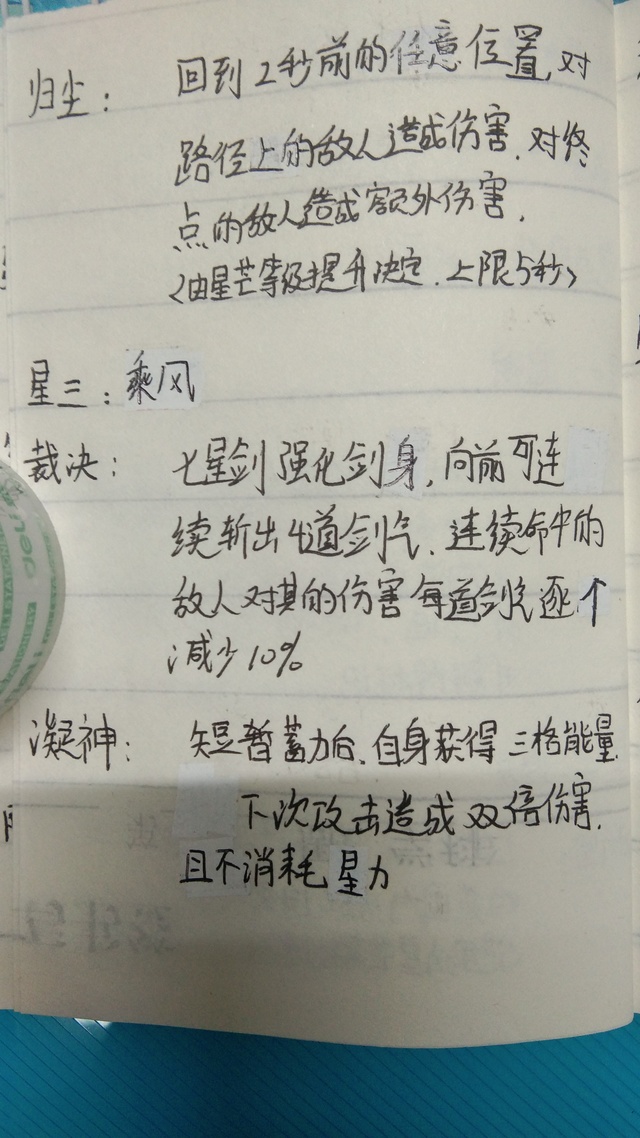 归尘： 回到2秒前的任意位置，对
路径上的敌人造成伤害，对终
点的敌人造成额外伤害，
<由星芒等级提升决定，上限5秒>
星三：乘风
裁决： 七星剑强化剑身，向前可连
续斩出4道剑气，连续命中的
敌人对其的伤害每道剑气逐个
减少10%
凝神： 短暂蓄力后，自身获得三格能量
下次攻击造成双倍伤害，
且不消耗星力